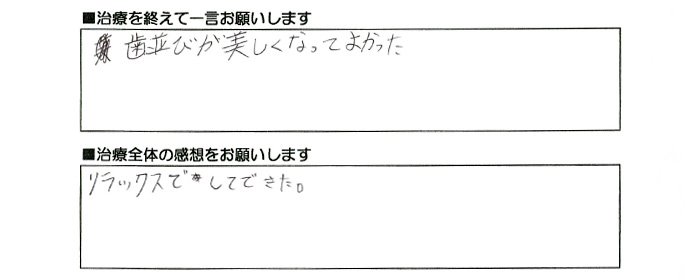 ■治療を終えて一言お願いします
歯並びが美しくなってよかった
■治療全体の感想をお願いします
リラックスでしてできた。